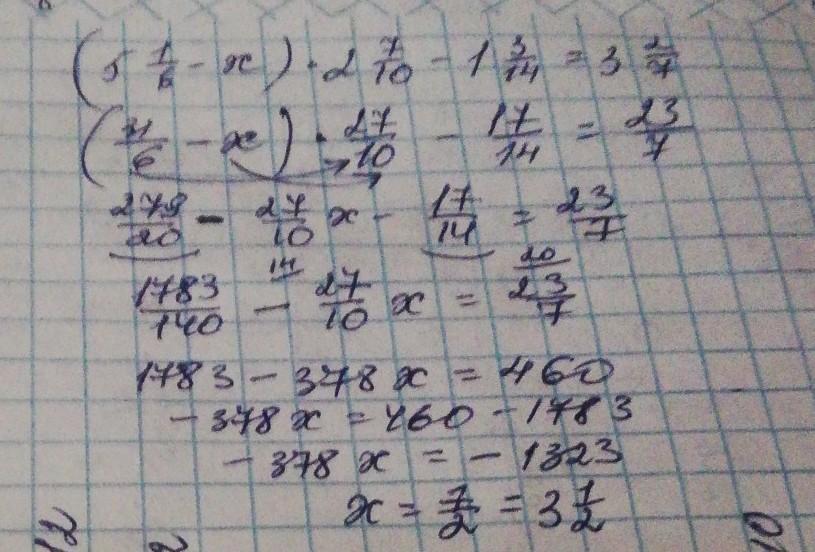 (5 1/6 - x) · 2 7/10 - 1 3/14 = 3 2/7
(31/6 - x) · 27/10 - 17/14 = 23/7
279/20 - 27/10 x - 17/14 = 23/7
14 20
1783/140 - 27/10 x = 23/7
1783 - 378 x = 460
- 378 x = 460 - 1783
- 378 x = - 1323
x = 7/2 = 3 1/2
12
2
10